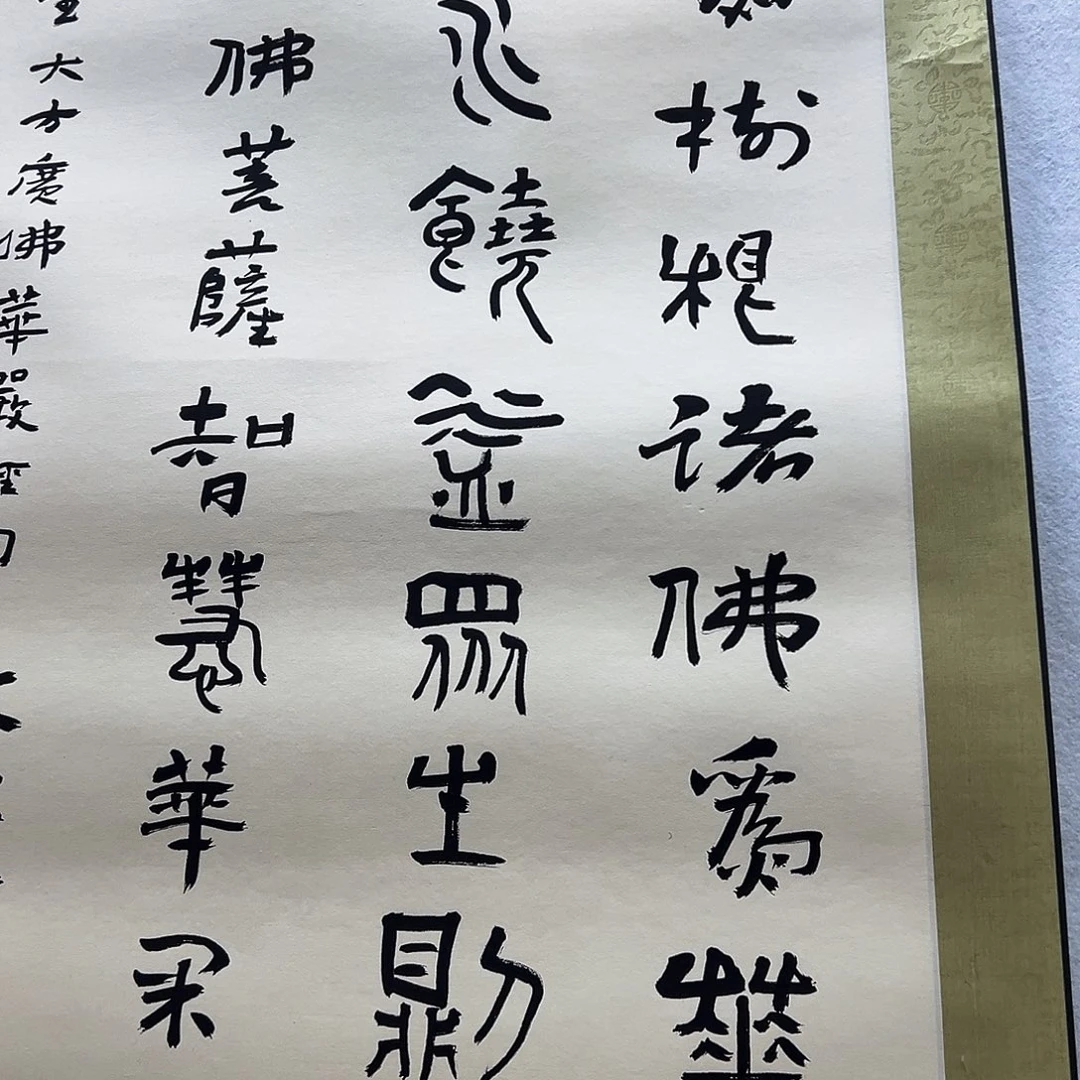 樹根諸佛爲華
水饒益眾生則
佛菩薩智慧華果
大方廣佛華嚴經句